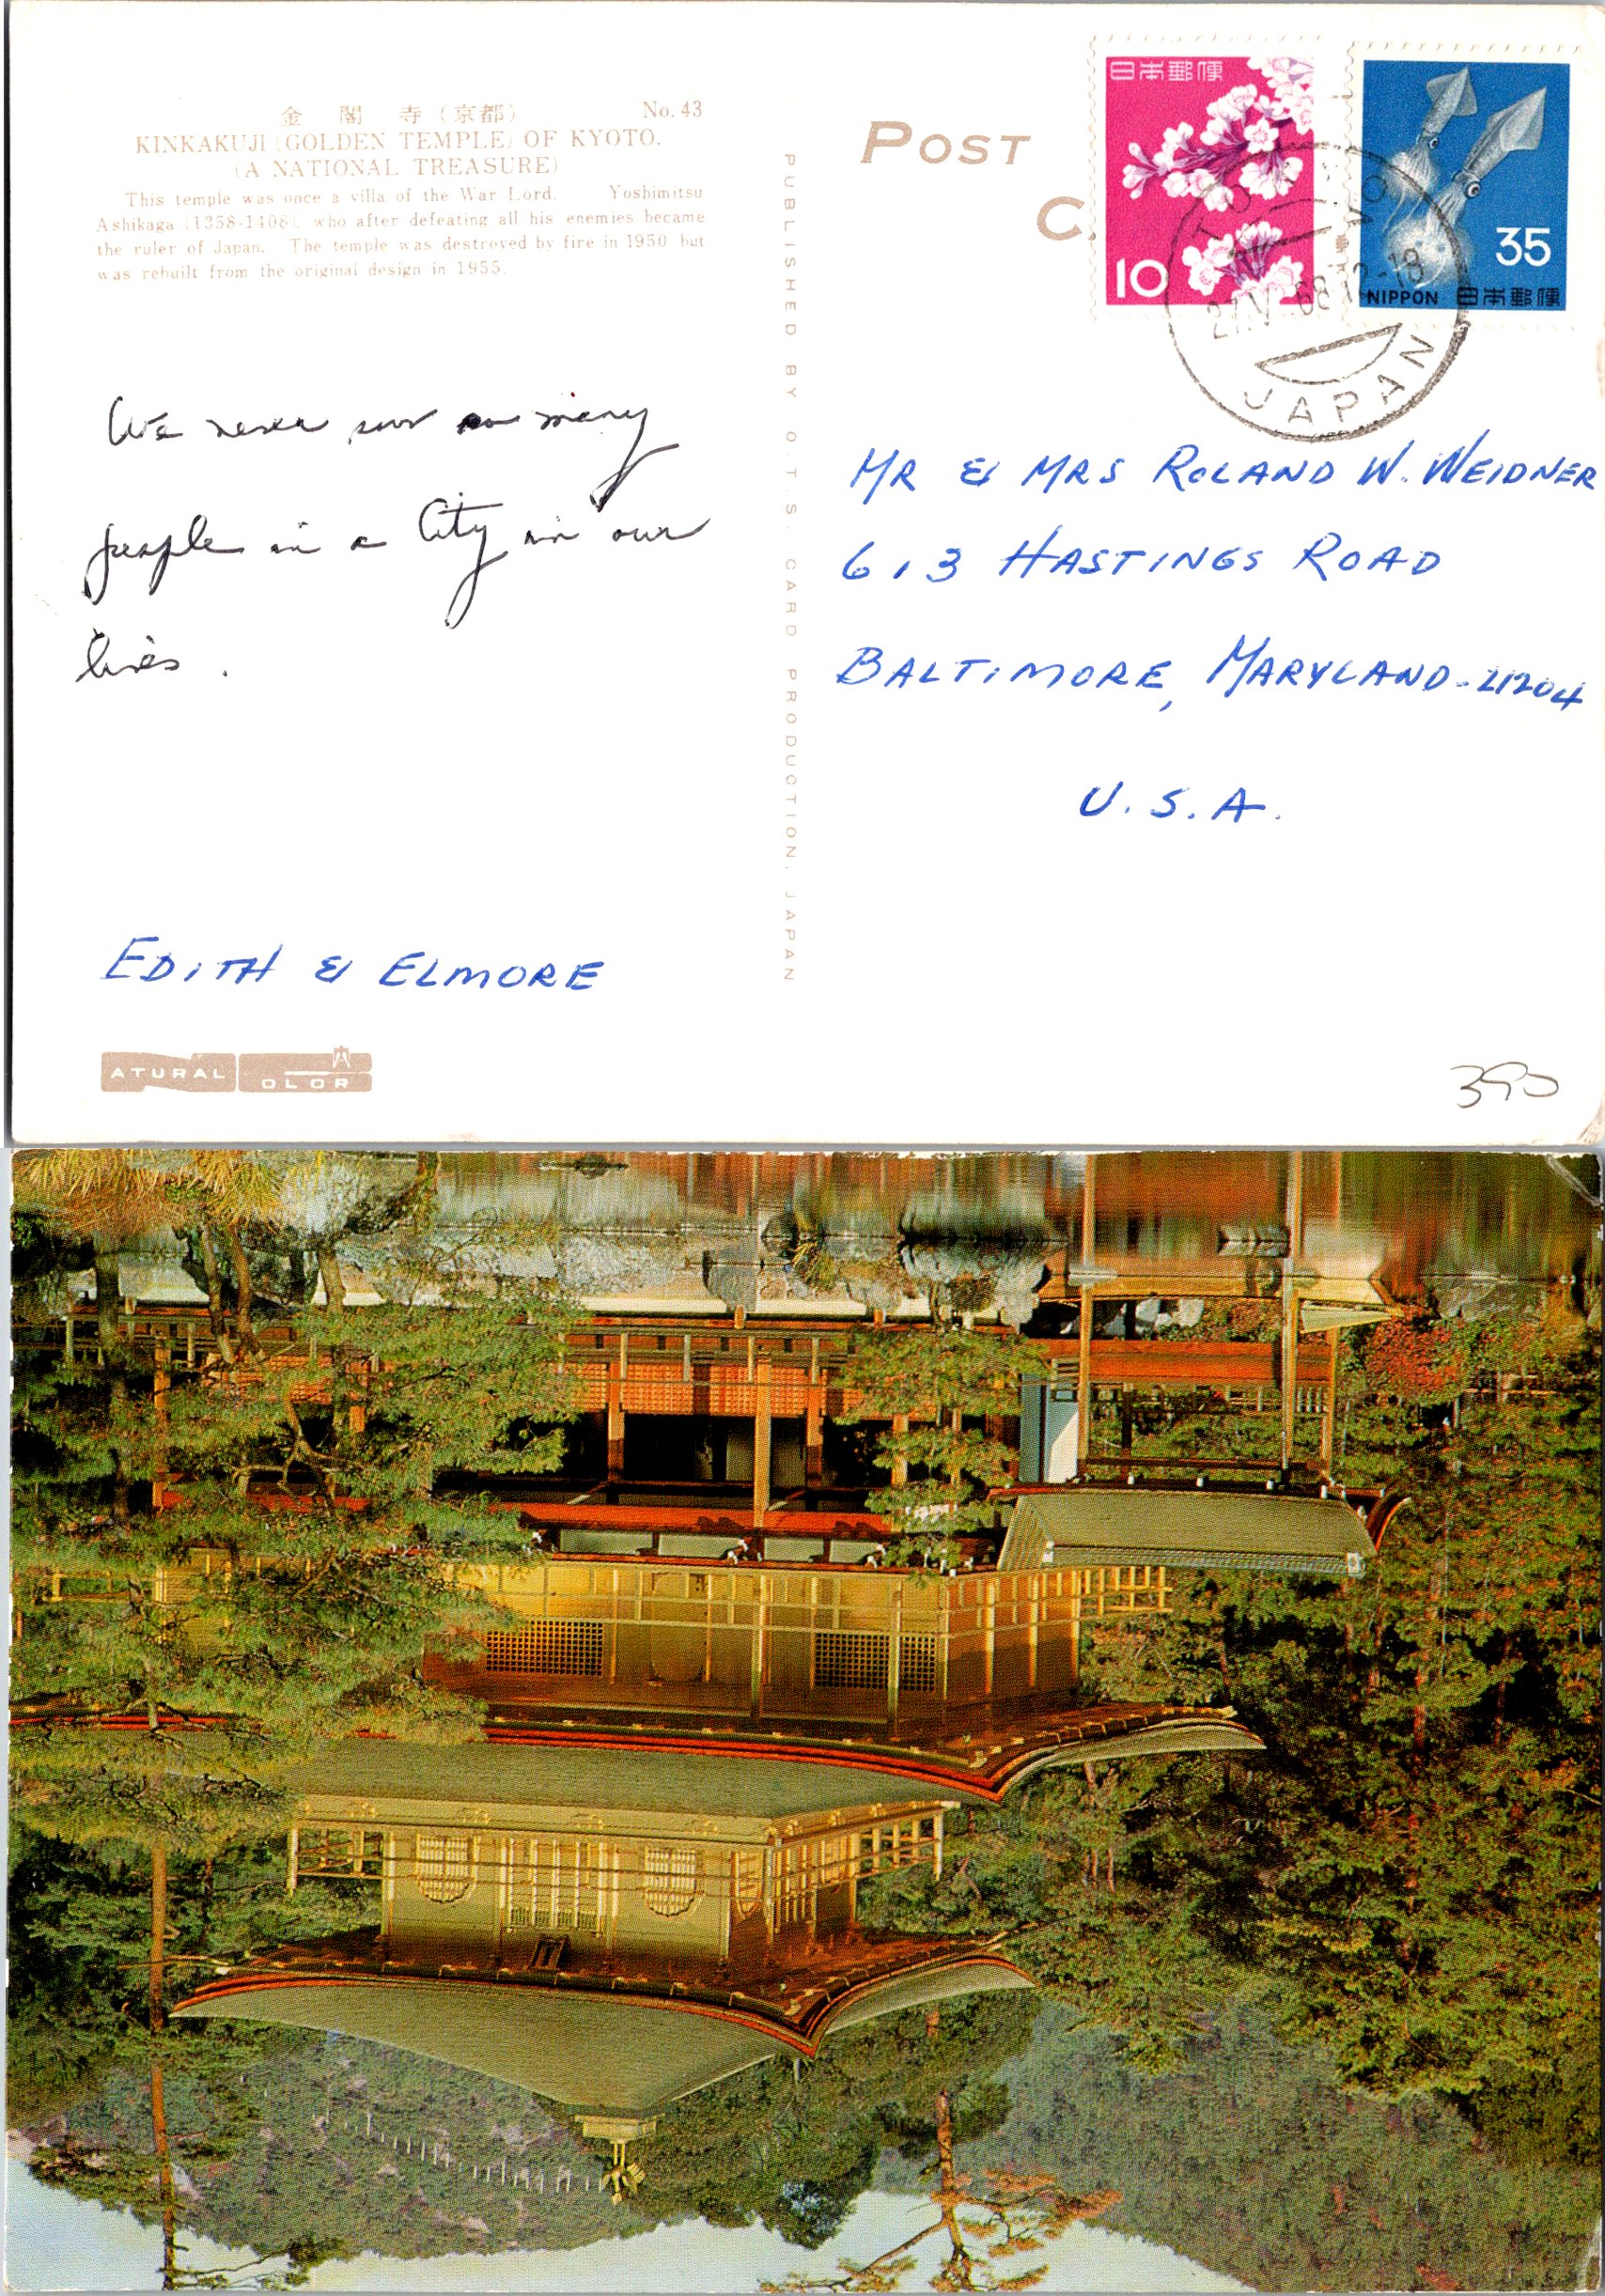 金閣寺（京都） No. 43
KINKAKUJI (GOLDEN TEMPLE) OF KYOTO.
(A NATIONAL TREASURE)
This temple was once a villa of the War Lord. Yoshimitsu
Ashikaga (1358-1408), who after defeating all his enemies became
the ruler of Japan. The temple was destroyed by fire in 1950 but
was rebuilt from the original design in 1955.
We never saw so many
people in a City in our
lives.
EDITH & ELMORE
ATURAL OLOR
PUBLISHED BY O.T.S. CARD PRODUCTION. JAPAN
POST
C
日本郵便
10
35
NIPPON 日本郵便
TOKYO
JAPAN
MR & MRS ROLAND W. WEIDNER
613 HASTINGS ROAD
BALTIMORE, MARYLAND - 21204
U.S.A.